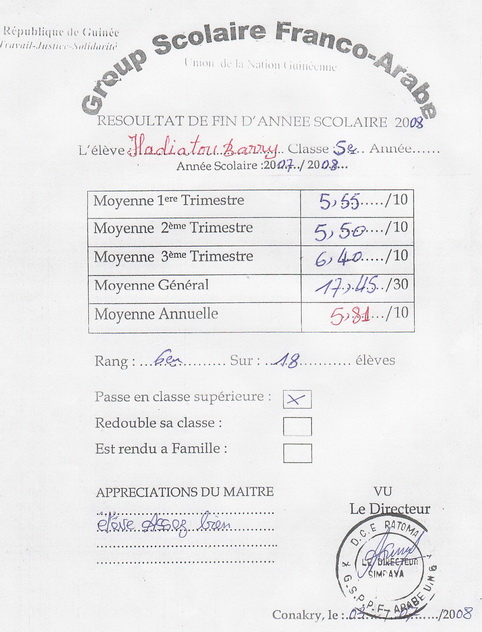 République de Guinée
Travail-Justice-Solidarité
Group Scolaire Franco-Arabe
Union de la Nation Guinéenne
RESOULTAT DE FIN D'ANNEE SCOLAIRE 2008
L'élève: Hadiatou Barry Classe 5e Année......
Année Scolaire :2007./ 2008...
Moyenne 1ere Trimestre 5,55...../10
Moyenne 2ème Trimestre 5,50...../10
Moyenne 3ème Trimestre 6,40...../10
Moyenne Général 17,45...../30
Moyenne Annuelle 5,81.../10
Rang : ...6en.......... Sur : ..18........... élèves
Passe en classe supérieure : X
Redouble sa classe :
Est rendu a Famille :
APPRECIATIONS DU MAITRE
élève assez bien
VU
Le Directeur
D.C.E RATOMA
LE DIRECTEUR
SIMBAYA
G.S.P.P.F-ARABE U.N.G
Conakry, le :...../2008